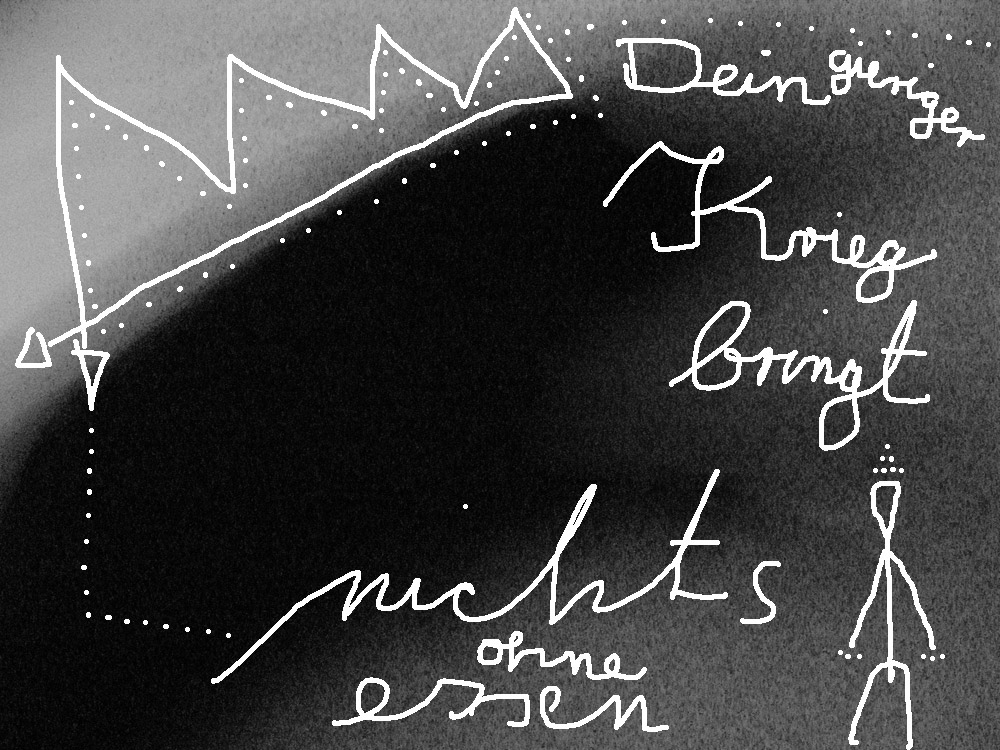 Dein gieriger
Krieg
bringt
nichts
ohne
essen